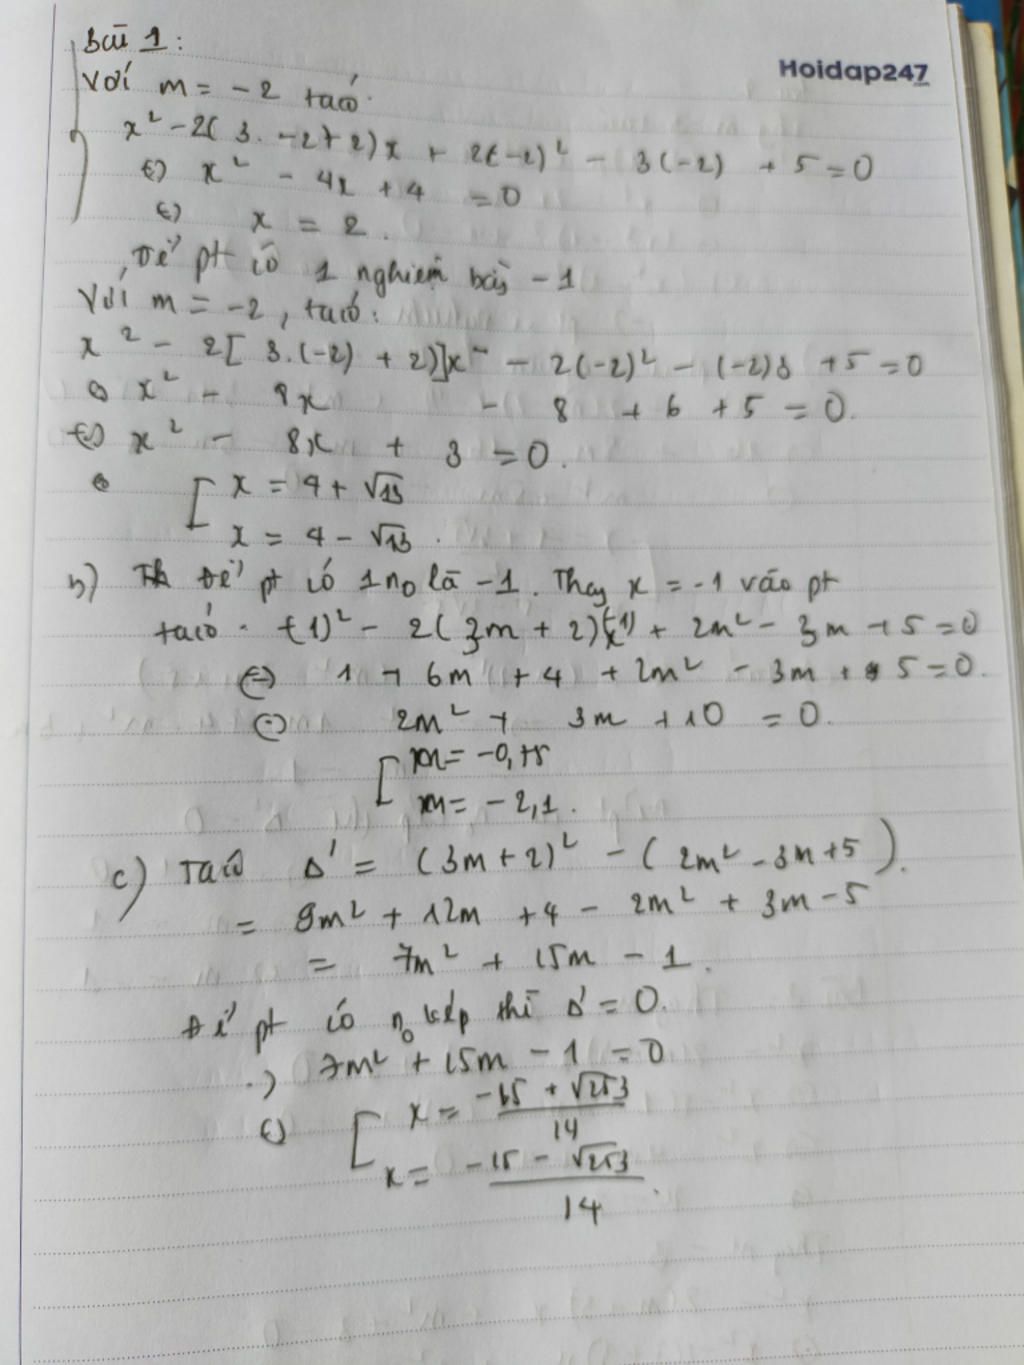 Bài 1:
Hoidap247
Với m = -2 ta có
x² - 2( 3. -2+2)x + 2(-2)² - 3(-2) + 5 = 0
(=) x² - 4x + 4 = 0
(=) x = 2.
Để pt có 1 nghiệm bằng -1
Với m = -2, ta có:
x² - 2[ 3.(-2) + 2)]x - 2(-2)² - (-2)3 + 5 = 0
x² - 8x - 8 + 6 + 5 = 0.
(=) x² - 8x + 3 = 0.
[ x = 4 + √13
x = 4 - √13.
b) Để pt có 1 n₀ là -1. Thay x = -1 vào pt
ta có. (-1)² - 2(3m + 2)(-1) + 2m² - 3m + 5 = 0
(=) 1 + 6m + 4 + 2m² - 3m + 5 = 0.
(=) 2m² + 3m + 10 = 0.
[ m = -0,75
m = -2,1.
c) Ta có Δ' = (3m + 2)² - (2m² - 3m + 5).
= 9m² + 12m + 4 - 2m² + 3m - 5
= 7m² + 15m - 1.
Để pt có n₀ kép thì Δ' = 0.
7m² + 15m - 1 = 0
(=) [ x = (-15 + √253)/14
x = (-15 - √253)/14.